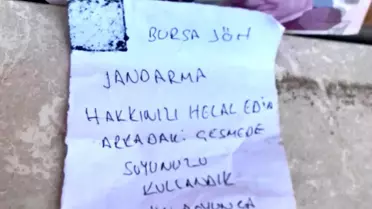 BURSA JÖH
JANDARMA
HAKKINIZI HELAL EDİN
ARKADAKİ ÇEŞMEDE
SUYUNUZU
KULLANDIK